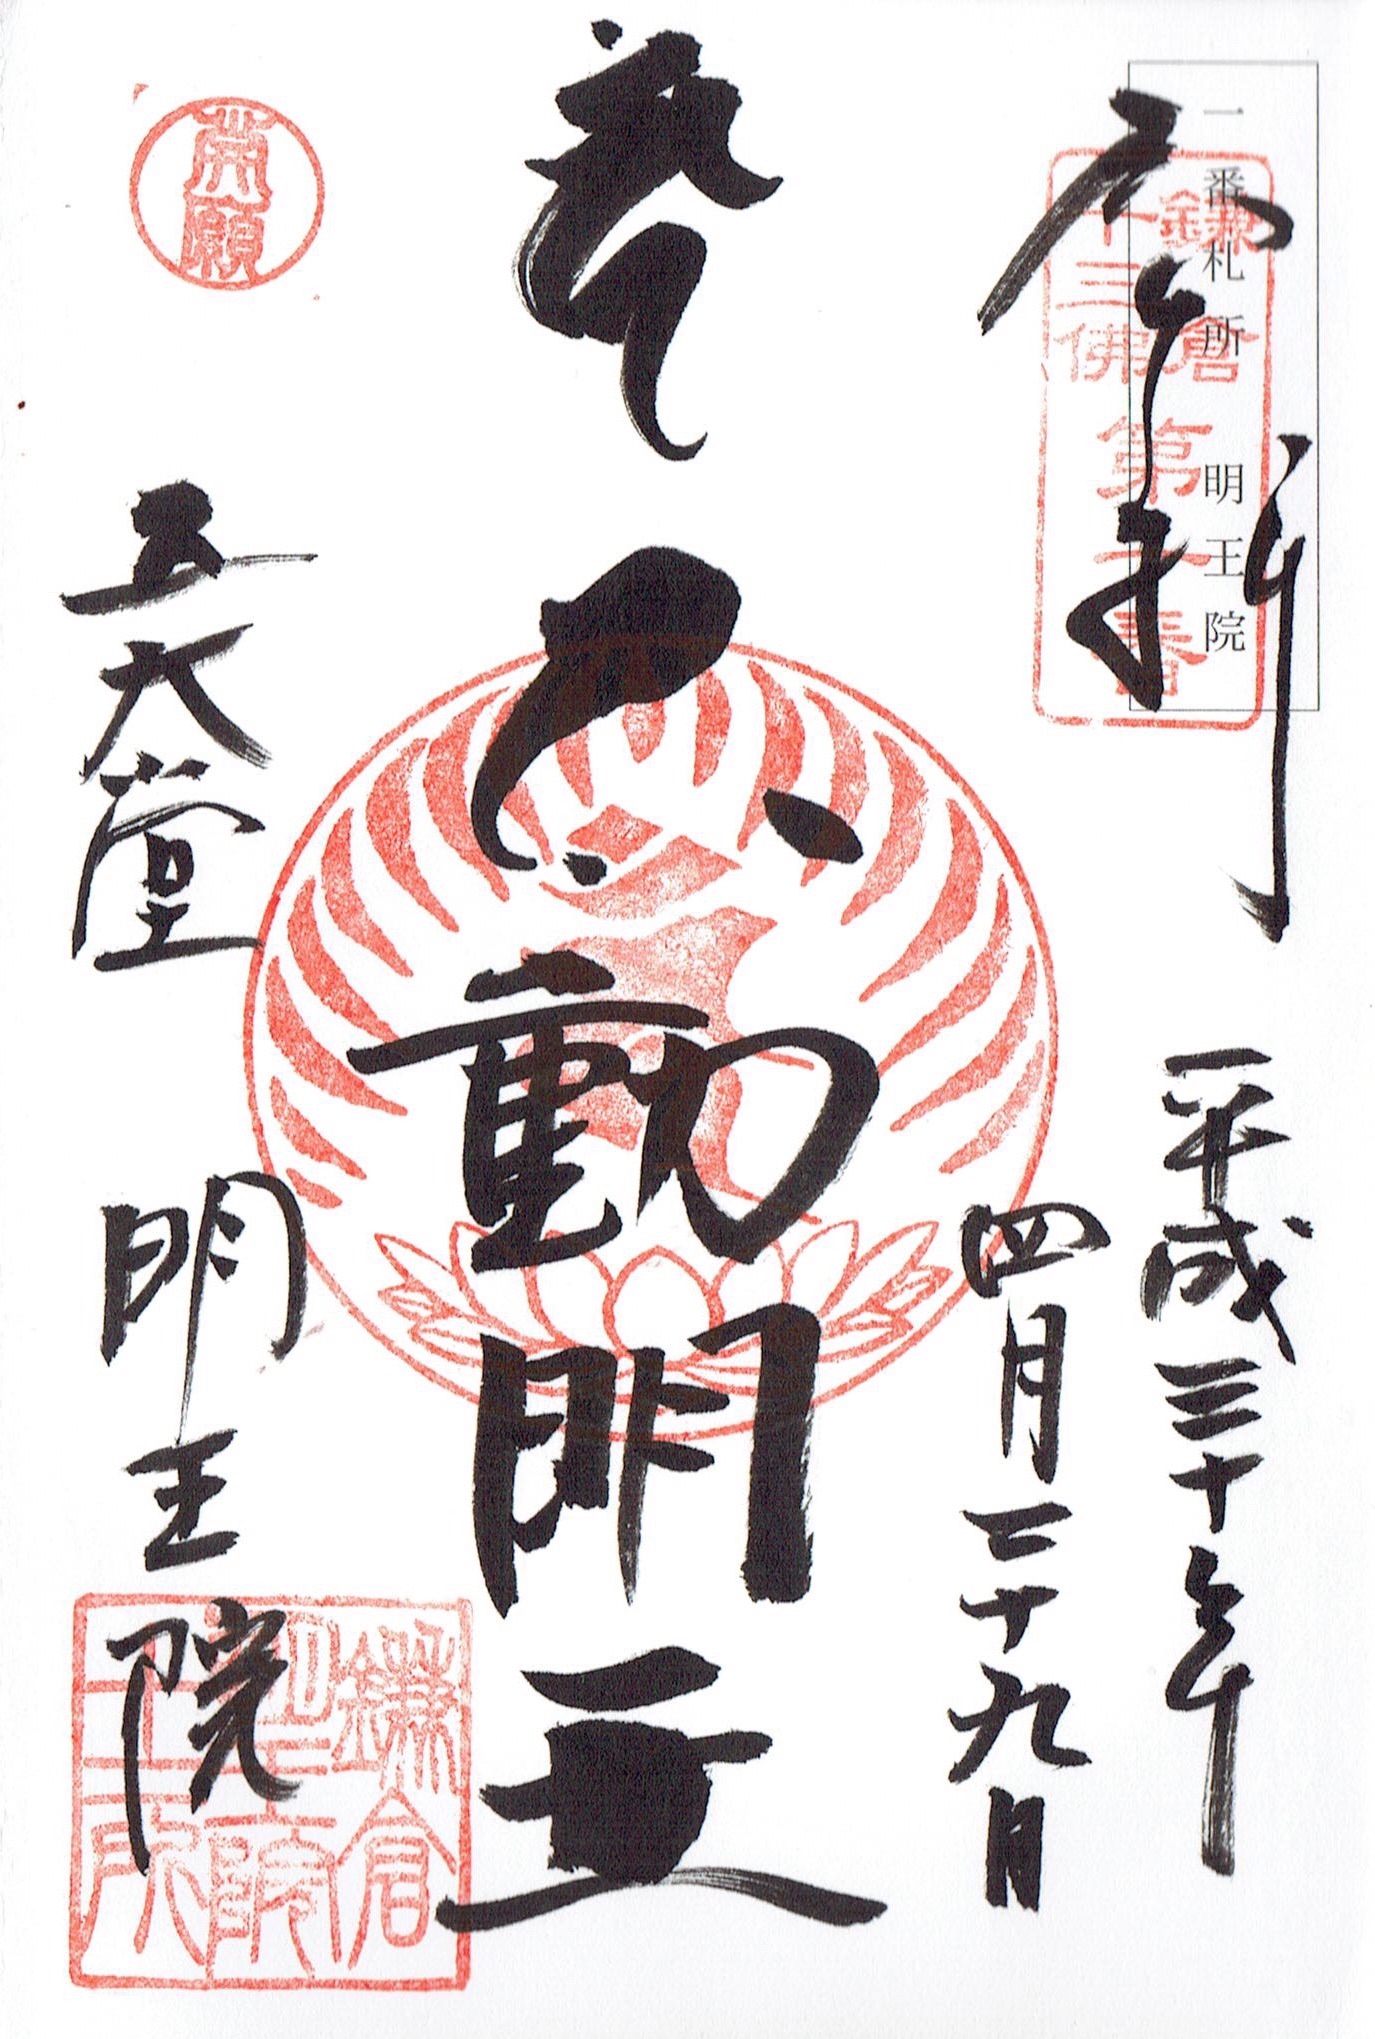 一番札所 明王院
鎌倉
十三佛
第一番
平成三十年
四月二十九日
不動明王
五大堂 明王院
鎌倉
明王院
十二所